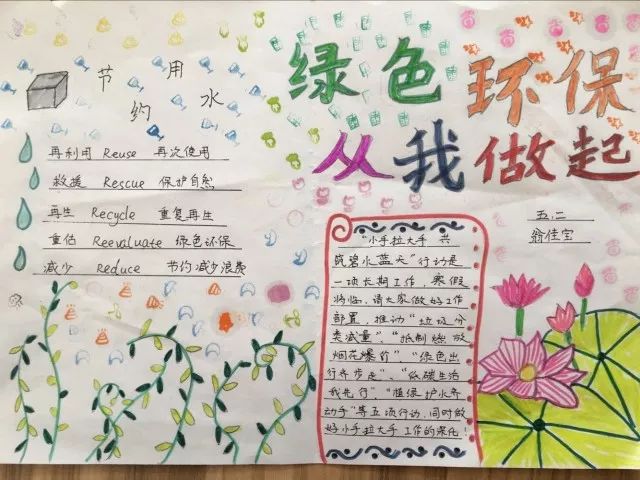 绿色环保
从我做起
节约用水
再利用 Reuse 再次使用
救援 Rescue 保护自然
再生 Recycle 重复再生
重估 Reevaluate 绿色环保
减少 Reduce 节约减少浪费
五.二
翁佳宝
“小手拉大手 共
筑碧水蓝天”行动是
一项长期工作,寒假
将临,请大家做好工作
部署,推动“垃圾分
类减量”、“抵制燃放
烟花爆竹”“绿色出
行齐步走”、“低碳生活
我先行”“植绿护水齐
动手”等五项行动,同时做
好小手拉大手工作的深化!